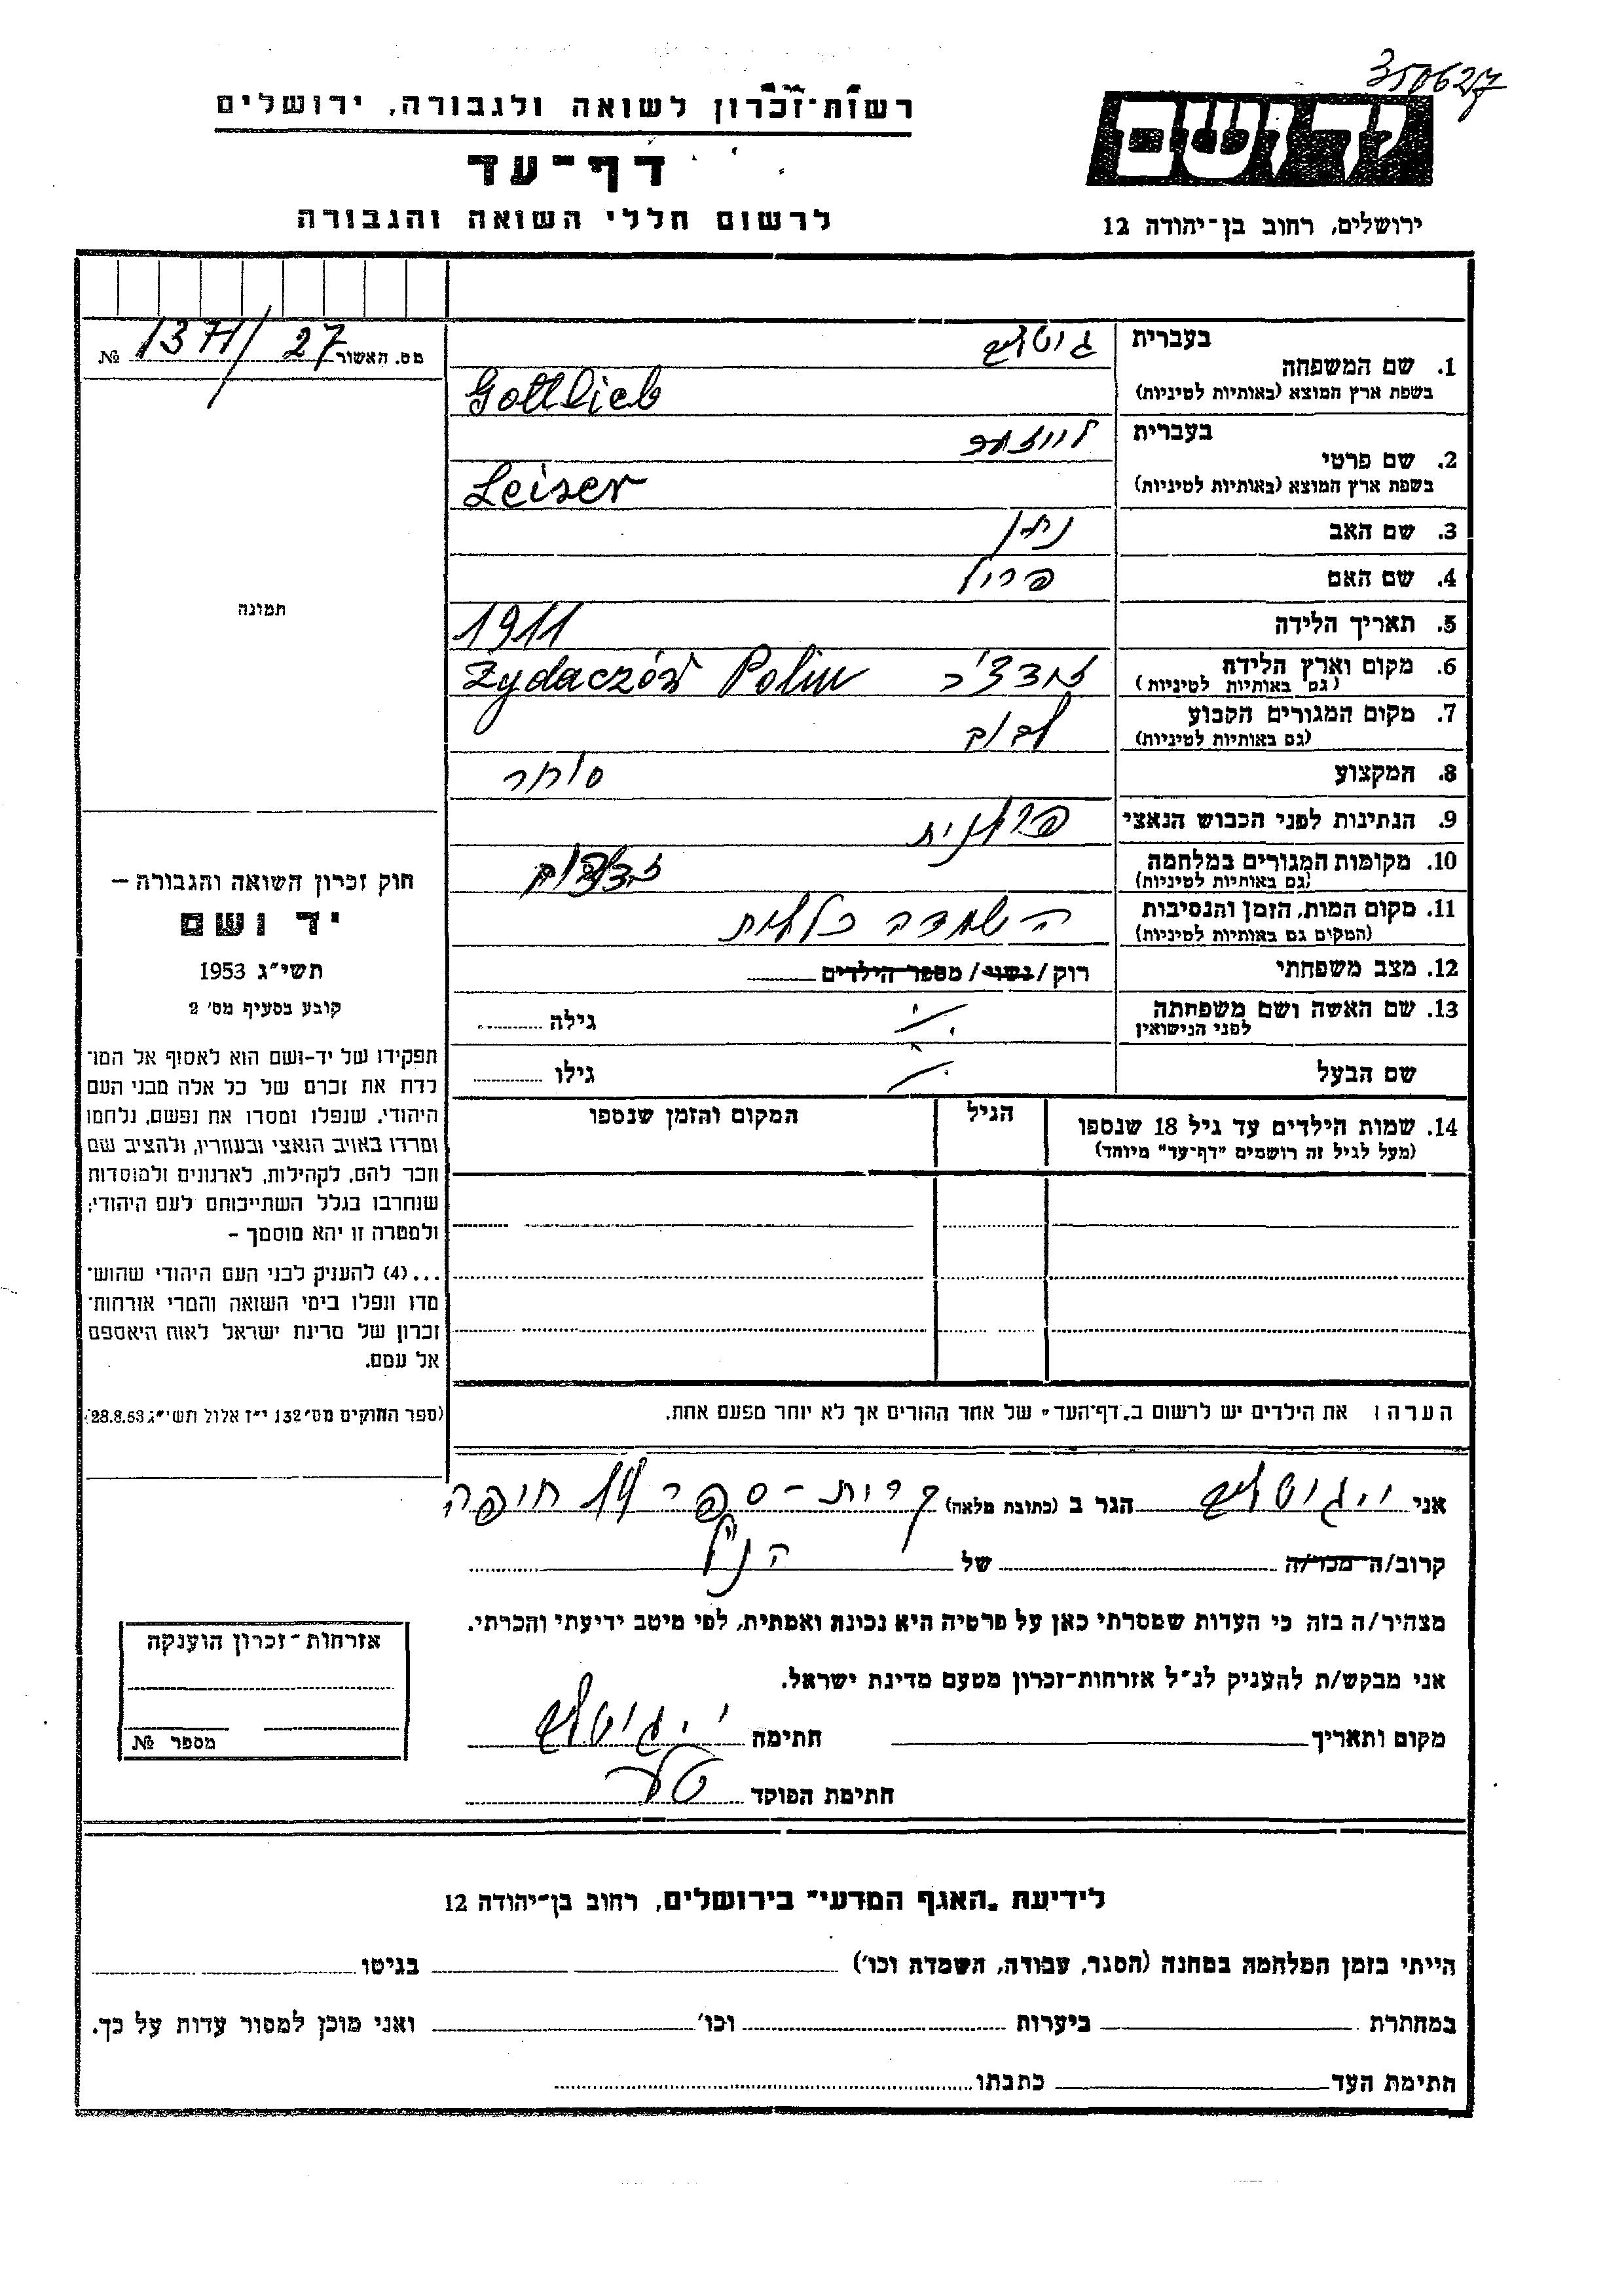 350627
רשות־זכרון לשואה ולגבורה, ירושלים
יד ושם
דף־עד
לרשום חללי השואה והגבורה
ירושלים, רחוב בן־יהודה 12
מס. האשור 27 / № 137
בעברית
1. שם המשפחה
גוטליב
בשפת ארץ המוצא (באותיות לטיניות)
Gottlieb
בעברית
2. שם פרטי
בשפת ארץ המוצא (באותיות לטיניות)
Leiser
3. שם האב נתן
4. שם האם פריל
5. תאריך הלידה 1911
6. מקום וארץ הלידה Żydaczów Polin
(גם באותיות לטיניות)
7. מקום המגורים הקבוע
(גם באותיות לטיניות)
8. המקצוע סוחר
9. הנתינות לפני הכבוש הנאצי פולנית
10. מקומות המגורים במלחמה
(גם באותיות לטיניות)
11. מקום המות, הזמן והנסיבות השמדה כללית
(המקום גם באותיות לטיניות)
12. מצב משפחתי רוק / נשוי / מספר הילדים
13. שם האשה ושם משפחתה
לפני הנישואין
גילה
שם הבעל גילו
14. שמות הילדים עד גיל 18 שנספו הגיל המקום והזמן שנספו
(מעל לגיל זה רושמים "דף־עד" מיוחד)
הערה: את הילדים יש לרשום ב„דף־העד" של אחד ההורים אך לא יותר מפעם אחת.
תמונה
חוק זכרון השואה והגבורה –
יד ושם
תשי"ג 1953
קובע בסעיף מס' 2
תפקידו של יד-ושם הוא לאסוף אל המו־
לדת את זכרם של כל אלה מבני העם
היהודי, שנפלו ומסרו את נפשם, נלחמו
ומרדו באויב הנאצי ובעוזריו, ולהציב שם
וזכר להם, לקהילות, לארגונים ולמוסדות
שנחרבו בגלל השתייכותם לעם היהודי;
ולמטרה זו יהא מוסמך –
...(4) להעניק לבני העם היהודי שהוש־
מדו ונפלו בימי השואה והמרי אזרחות־
זכרון של מדינת ישראל לאות היאספם
אל עמם.
(ספר החוקים מס' 132 י"ז אלול תשי"ג 28.8.53)
אני י. גוטליב הגר ב (כתובת מלאה) קרית-ספר 14 חיפה
קרוב/ה מכר/ה של הנ"ל
מצהיר/ה בזה כי העדות שמסרתי כאן על פרטיה היא נכונה ואמתית, לפי מיטב ידיעתי והכרתי.
אני מבקש/ת להעניק לנ"ל אזרחות-זכרון מטעם מדינת ישראל.
מקום ותאריך חתימה י. גוטליב
חתימת הפוקד
אזרחות־זכרון הוענקה
מספר №
לידיעת „האגף המדעי" בירושלים, רחוב בן־יהודה 12
הייתי בזמן המלחמה במחנה (הסגר, עבודה, השמדת וכו') בגיטו
במחתרת ביערות וכו' ואני מוכן למסור עדות על כך.
חתימת העד כתבתו